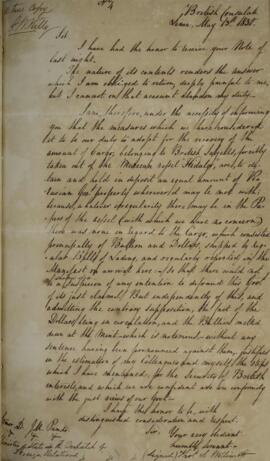 A true Copy
British Consulate
Lima, May 13th 1830.
Sir
I have had the honor to receive your Note of
last night.
The nature of its contents renders the answer
which I am obliged to return, deeply painful to me,
but I cannot on that account abandon my duty.
I am, therefore, under the necessity of informing
you that the measures which we have considered
it to be our duty to adopt for the recovery of the
amount of Cargo, belonging to British Subjects, forcibly
taken out of the Mexican vessel Hidalgo, are, to detain
and hold in deposit an equal amount of Peruvian
Govt property wherever it may be met with;
because, whatever irregularity there may be in the Papers
of the vessel (with which we have no concern)
there was none in regard to the Cargo, which consisted
principally of Bullion and Dollars, shipped to regular
Bills of Lading, and regularly reported in the
Manifest on arrival here - so that there could not
be a suspicion of any intention to defraud this Govt
of its just claims. But independently of that, and
admitting the contrary supposition, the fact of the
Dollars being in circulation, and the Bullion melted
down at the Mint - which is notorious - without any
sentence having been pronounced against them, justifies
in the estimation of my Colleagues and myself the steps
which I have mentioned, for the Security of British
interests, and which we are confident are in conformity
with the just views of our Govt.
I have the honor to be, with
distinguished consideration and respect.
Sir, Your most obedient
humble servant
(Signed) Thos